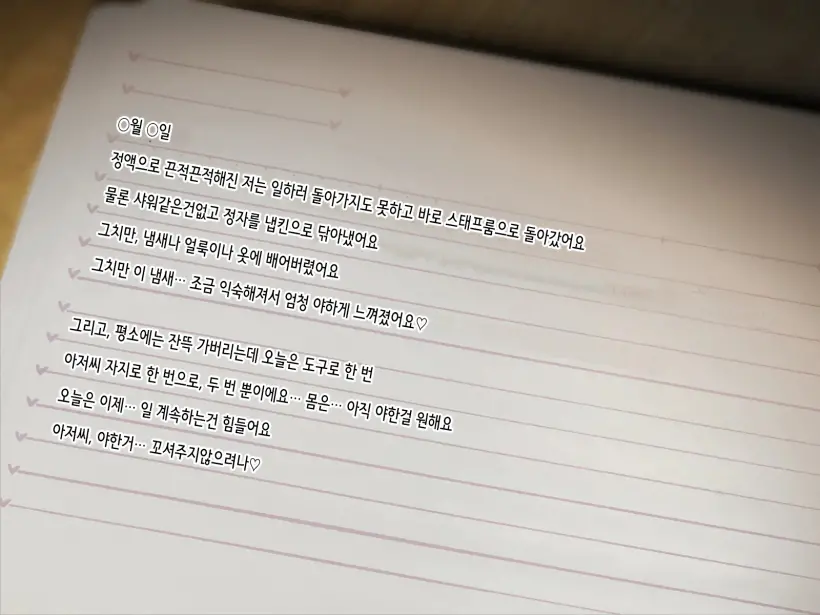 ○월 ○일
정액으로 끈적끈적해진 저는 일하러 돌아가지도 못하고 바로 스태프룸으로 돌아갔어요
물론 샤워같은건없고 정자를 냅킨으로 닦아냈어요
그치만, 냄새나 얼룩이나 옷에 배어버렸어요
그치만 이 냄새… 조금 익숙해져서 엄청 야하게 느껴졌어요♡
그리고, 평소에는 잔뜩 가버리는데 오늘은 도구로 한 번
아저씨 자지로 한 번으로, 두 번 뿐이에요… 몸은… 아직 야한걸 원해요
오늘은 이제… 일 계속하는건 힘들어요
아저씨, 야한거… 꼬셔주지않으려나♡